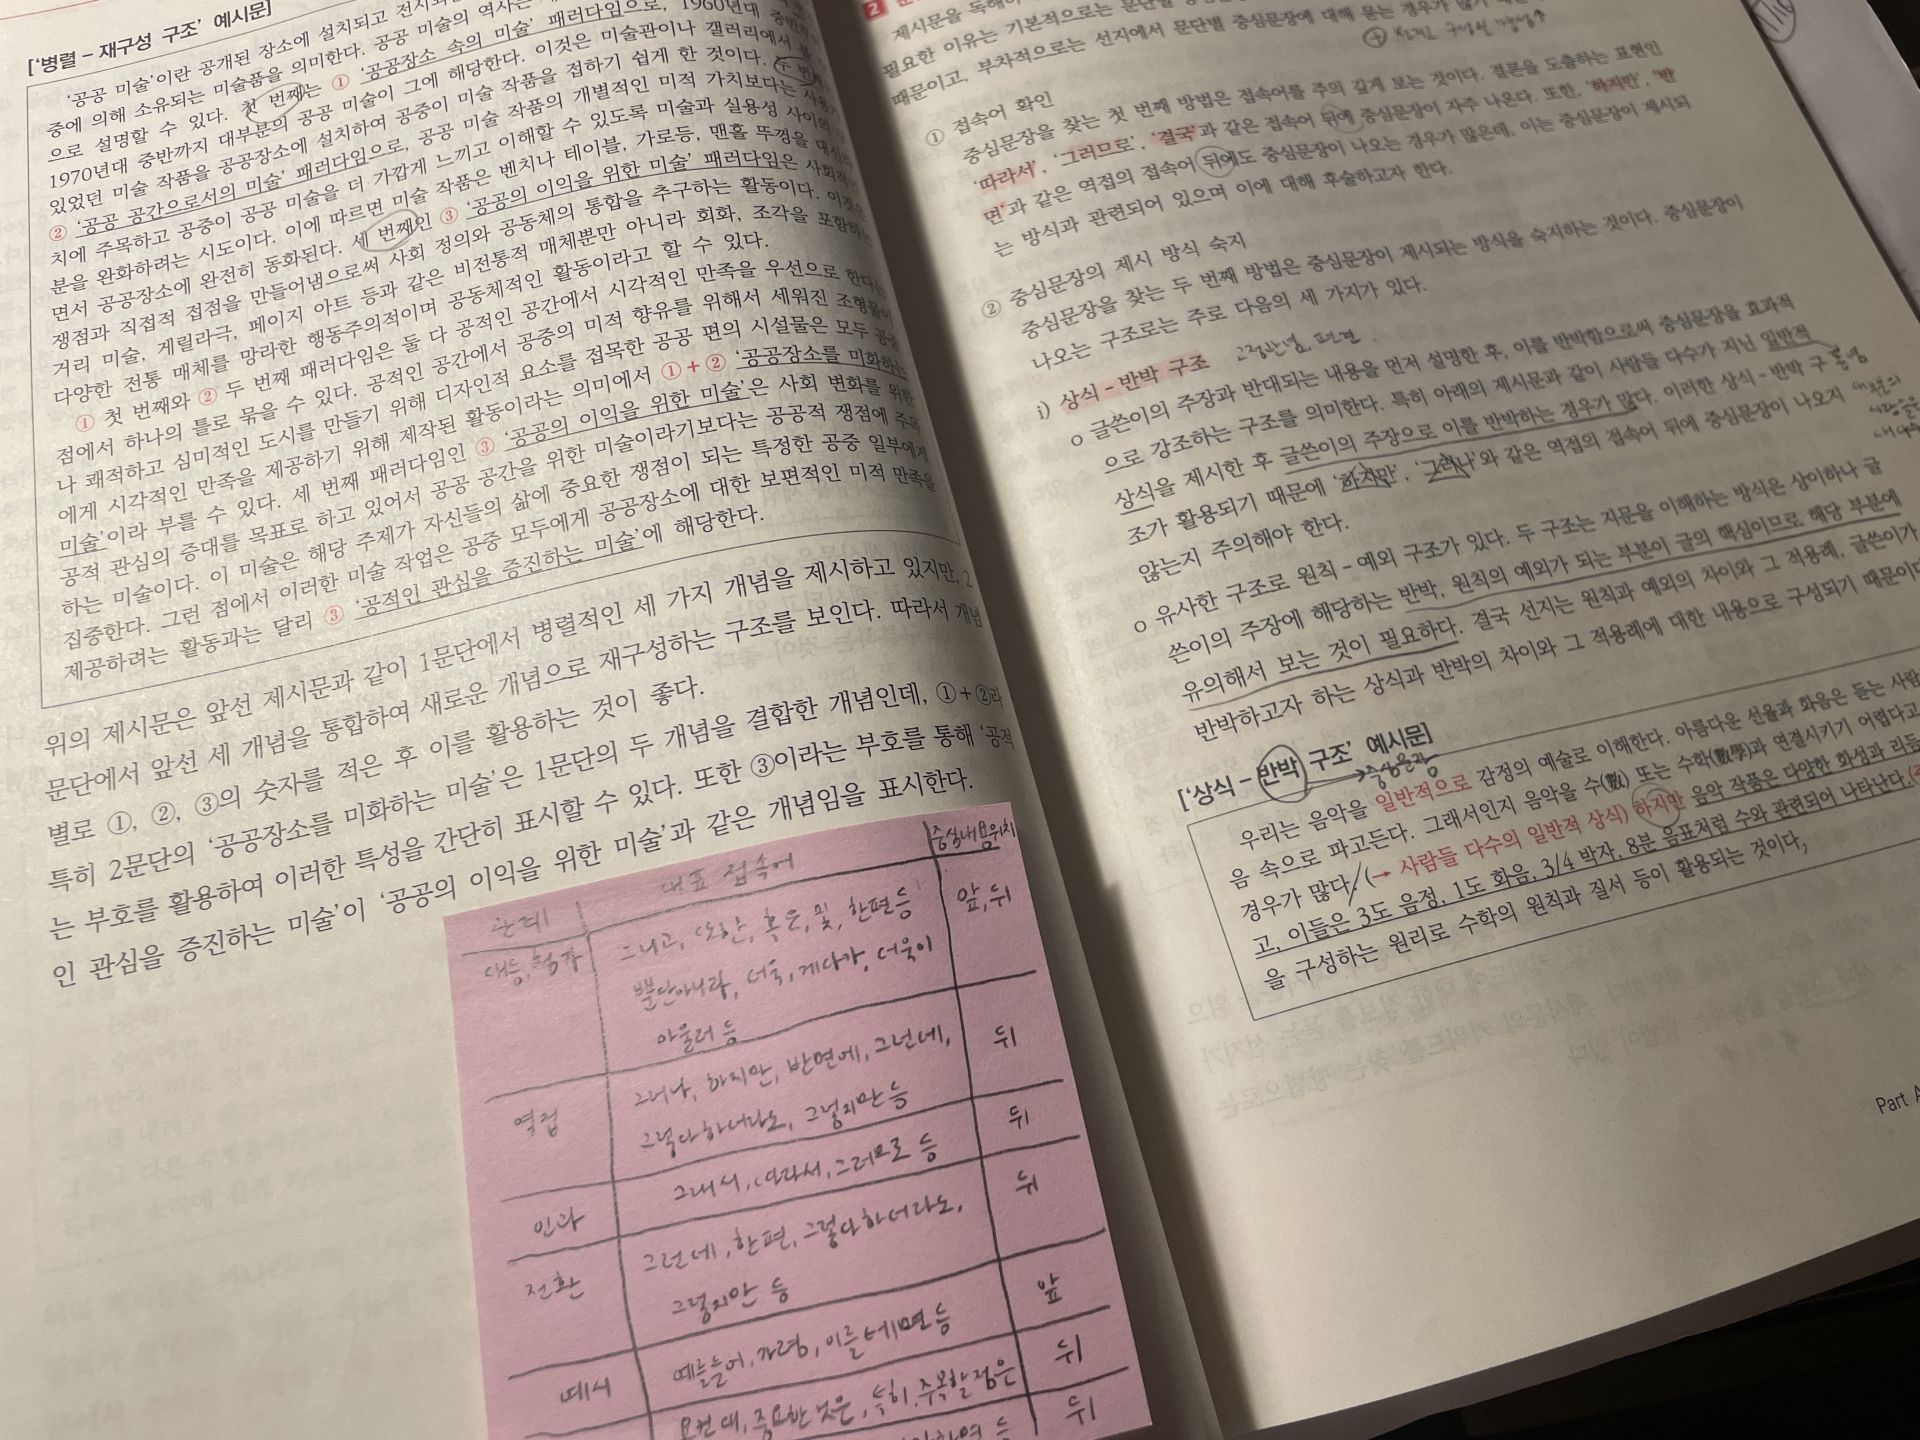 ['병렬 – 재구성 구조' 예시문]
'공공 미술'이란 공개된 장소에 설치되고 전시되
중에 의해 소유되는 미술품을 의미한다. 공공 미술의 역사는
으로 설명할 수 있다. 첫 번째는 ① '공공장소 속의 미술' 패러다임으로, 1960년대
1970년대 중반까지 대부분의 공공 미술이 그에 해당한다. 이것은 미술관이나 갤러리에서
있었던 미술 작품을 공공장소에 설치하여 공중이 미술 작품을 접하기 쉽게 한 것이다. 두 번째
② '공공 공간으로서의 미술' 패러다임으로, 공공 미술 작품의 개별적인 미적 가치보다는
치에 주목하고 공중이 공공 미술을 더 가깝게 느끼고 이해할 수 있도록 미술과 실용성 사이의
분을 완화하려는 시도이다. 이에 따르면 미술 작품은 벤치나 테이블, 가로등, 맨홀 뚜껑을
면서 공공장소에 완전히 동화된다. 세 번째인 ③ '공공의 이익을 위한 미술' 패러다임은
쟁점과 직접적 접점을 만들어냄으로써 사회 정의와 공동체의 통합을 추구하는 활동이다. 이것은
거리 미술, 게릴라극, 페이지 아트 등과 같은 비전통적 매체뿐만 아니라 회화, 조각을 포함하는
다양한 전통 매체를 망라한 행동주의적이며 공동체적인 활동이라고 할 수 있다.
① 첫 번째와 ② 두 번째 패러다임은 둘 다 공적인 공간에서 시각적인 만족을 우선으로 한다는
점에서 하나의 틀로 묶을 수 있다. 공적인 공간에서 공중의 미적 향유를 위해서 세워진 조형물이
나 쾌적하고 심미적인 도시를 만들기 위해 디자인적 요소를 접목한 공공 편의 시설물은 모두 공중
에게 시각적인 만족을 제공하기 위해 제작된 활동이라는 의미에서 ①+② '공공장소를 미화하는
미술'이라 부를 수 있다. 세 번째 패러다임인 ③ '공공의 이익을 위한 미술'은 사회 변화를 위한
공적 관심의 증대를 목표로 하고 있어서 공공 공간을 위한 미술이라기보다는 공공적 쟁점에 주목
하는 미술이다. 이 미술은 해당 주제가 자신들의 삶에 중요한 쟁점이 되는 특정한 공중 일부에게
집중한다. 그런 점에서 이러한 미술 작업은 공중 모두에게 공공장소에 대한 보편적인 미적 만족을
제공하려는 활동과는 달리 ③ '공적인 관심을 증진하는 미술'에 해당한다.
위의 제시문은 앞선 제시문과 같이 1문단에서 병렬적인 세 가지 개념을 제시하고 있지만, 2
문단에서 앞선 세 개념을 통합하여 새로운 개념으로 재구성하는 구조를 보인다. 따라서 개념
별로 ①, ②, ③의 숫자를 적은 후 이를 활용하는 것이 좋다.
특히 2문단의 '공공장소를 미화하는 미술'은 1문단의 두 개념을 결합한 개념인데, ①+②라
는 부호를 활용하여 이러한 특성을 간단히 표시할 수 있다. 또한 ③이라는 부호를 통해 '공적
인 관심을 증진하는 미술'이 '공공의 이익을 위한 미술'과 같은 개념임을 표시한다.
관계 대표 접속어 중심내용위치
대등, 첨가 그리고, 또한, 혹은, 및, 한편 등 앞, 뒤
뿐만아니라, 더욱, 게다가, 더욱이
아울러 등
역접 그러나, 하지만, 반면에, 그런데, 뒤
그렇다하더라도, 그렇지만 등
인과 그래서, 따라서, 그러므로 등 뒤
전환 그런데, 한편, 그렇다하더라도, 뒤
그렇지만 등
예시 예를들어, 가령, 이를테면 등 앞
요컨대, 중요한 것은, 특히, 주목할 점은 뒤
등 뒤
2
제시문을 독해하
필요한 이유는 기본적으로는 문단별
때문이고, 부차적으로는 선지에서 문단별 중심문장에 대해 묻는 경우가 많기
① 접속어 확인
중심문장을 찾는 첫 번째 방법은 접속어를 주의 깊게 보는 것이다. 결론을 도출하는 표현인
'따라서', '그러므로', '결국'과 같은 접속어 뒤에 중심문장이 자주 나온다. 또한, '하지만', '반
면'과 같은 역접의 접속어 뒤에도 중심문장이 나오는 경우가 많은데, 이는 중심문장이 제시되
는 방식과 관련되어 있으며 이에 대해 후술하고자 한다.
② 중심문장의 제시 방식 숙지
중심문장을 찾는 두 번째 방법은 중심문장이 제시되는 방식을 숙지하는 것이다. 중심문장이
나오는 구조로는 주로 다음의 세 가지가 있다.
i) 상식 – 반박 구조 고정관념, 편견
o 글쓴이의 주장과 반대되는 내용을 먼저 설명한 후, 이를 반박함으로써 중심문장을 효과적
으로 강조하는 구조를 의미한다. 특히 아래의 제시문과 같이 사람들 다수가 지닌 일반적
상식을 제시한 후 글쓴이의 주장으로 이를 반박하는 경우가 많다. 이러한 상식 – 반박 구
조가 활용되기 때문에 '하지만', '그러나'와 같은 역접의 접속어 뒤에 중심문장이 나오지
않는지 주의해야 한다.
o 유사한 구조로 원칙 – 예외 구조가 있다. 두 구조는 지문을 이해하는 방식은 상이하나 글
쓴이의 주장에 해당하는 반박, 원칙의 예외가 되는 부분이 글의 핵심이므로 해당 부분에
유의해서 보는 것이 필요하다. 결국 선지는 원칙과 예외의 차이와 그 적용례, 글쓴이가
반박하고자 하는 상식과 반박의 차이와 그 적용례에 대한 내용으로 구성되기 때문이다
['상식 – 반박 구조' 예시문]
중심문장
우리는 음악을 일반적으로 감정의 예술로 이해한다. 아름다운 선율과 화음은 듣는 사람
음 속으로 파고든다. 그래서인지 음악을 수(數) 또는 수학(數學)과 연결시키기 어렵다고
경우가 많다. (→ 사람들 다수의 일반적 상식) 하지만 음악 작품은 다양한 화성과 리듬
고, 이들은 3도 음정, 1도 화음, 3/4 박자, 8분 음표처럼 수와 관련되어 나타난다.
을 구성하는 원리로 수학의 원칙과 질서 등이 활용되는 것이다,
Part A